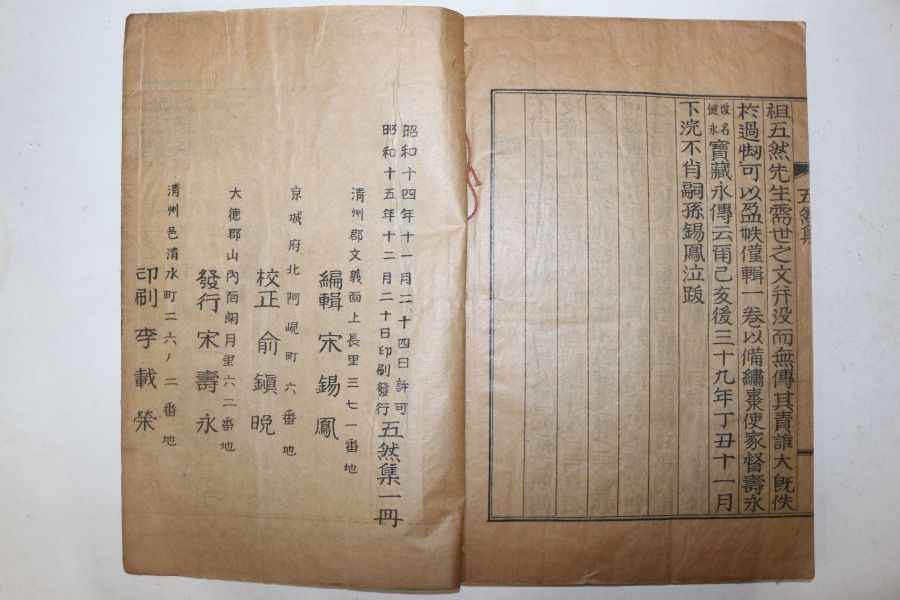 祖五然先生需世之文幷没而無傳其責誰大旣佚
於過㥘可以盈帙僅輯一卷以備繡棗使家督壽永
改名健永寶藏永傳云爾己亥後三十九年丁丑十一月
下浣不肖嗣孫錫鳳泣跋
五然集
昭和十四年十一月二十四日許可
昭和十五年十二月二十日印刷發行 五然集一冊
淸州郡文義面上長里三七一番地
編輯 宋錫鳳
京城府北阿峴町六番地
校正 俞鎭晩
大德郡山內面朗月里六二番地
發行 宋壽永
淸州邑淸水町二六ノ二番地
印刷 李載榮